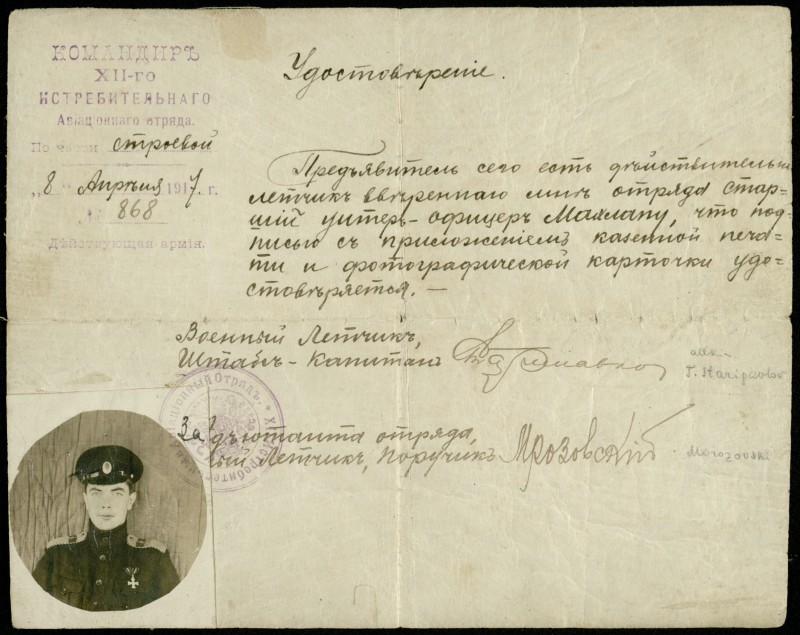 КОМАНДИРЪ
XII-го
ИСТРЕБИТЕЛЬНАГО
Авіаціоннаго отряда.
По части строевой
„8" Апрѣля 1917 г.
№ 868
Дѣйствующая армія.
Удостовѣреніе.
Предъявитель сего есть дѣйствительно
летчикъ ввѣреннаго мнѣ отряда стар=
шій унтеръ-офицеръ Махлапу, что под=
писью съ приложеніемъ казенной печа=
ти и фотографической карточки удо=
стовѣряется. —
Военный Летчикъ,
Штабсъ-Капитанъ
За адъютанта отряда,
ный Летчикъ, Поручикъ Мрозовскій
Morozovski